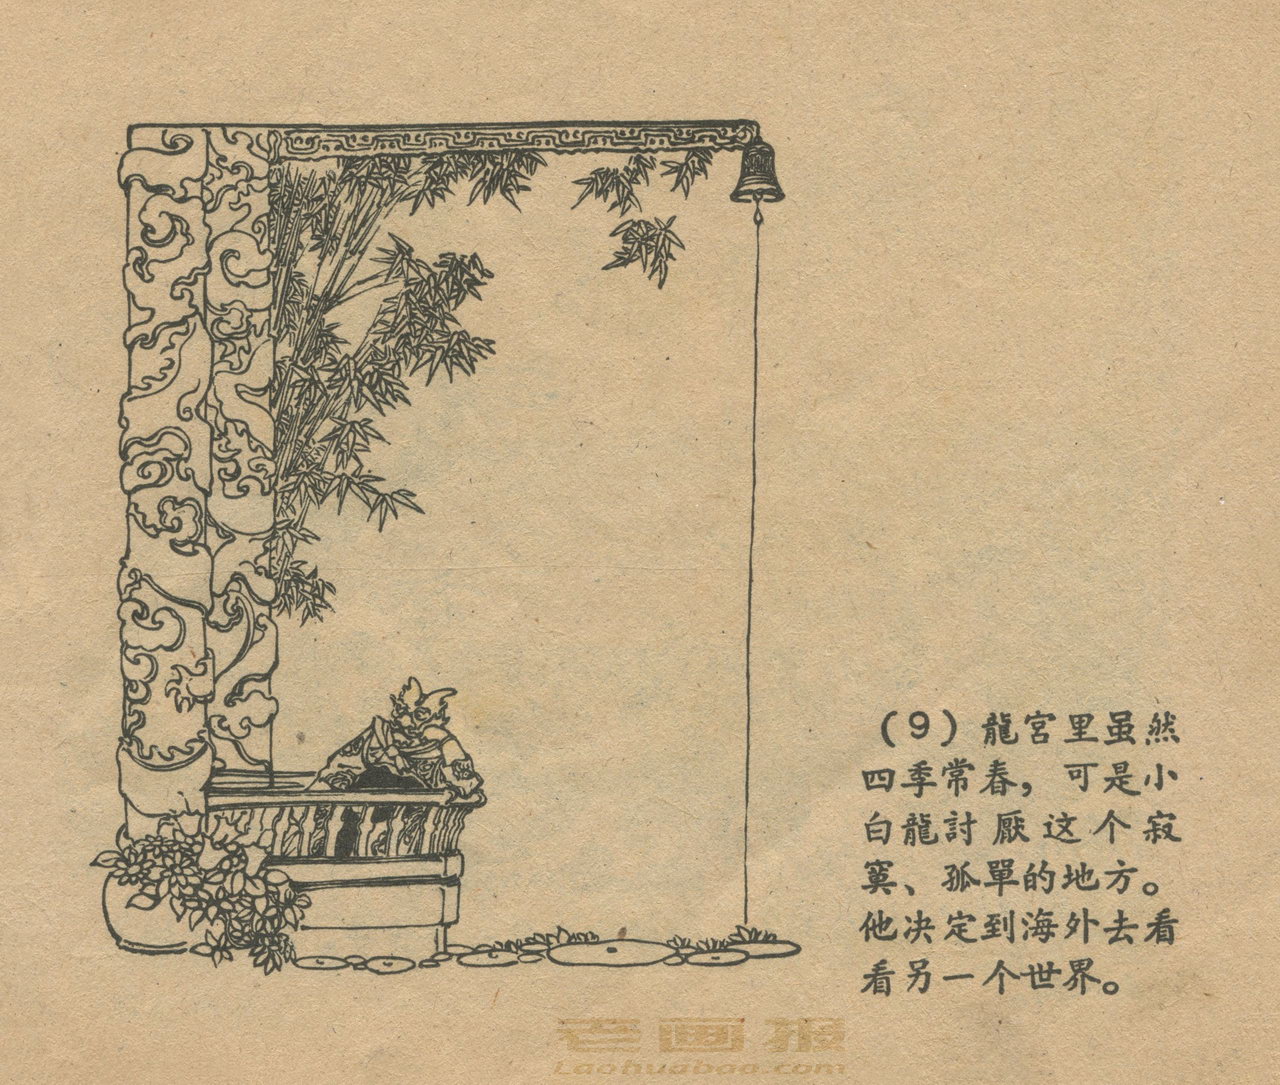 （9）龍宮里虽然
四季常春，可是小
白龍討厭这个寂
寞、孤單的地方。
他决定到海外去看
看另一个世界。
老画报
Laohuabao.com